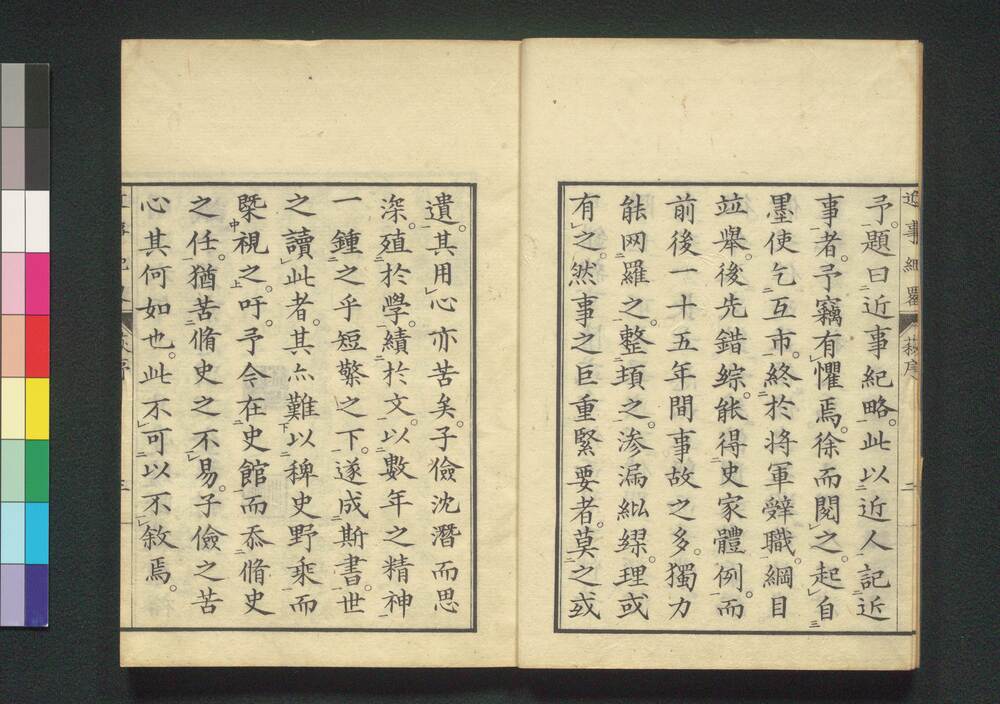 予。題曰近事紀略。此以近人記近
事者。予竊有懼焉。徐而閱之。起自
墨使乞互市。終於將軍辭職。綱目
竝舉。後先錯綜。能得史家體例。而
前後一十五年間事故之多。獨力
能网羅之。整頓之。滲漏紕繆。理或
有之。然事之巨重緊要者。莫之或
遺。其用心亦苦矣。子儉沈潛而思
深。殖於學。績於文。以數年之精神
一鍾之乎短檠之下。遂成斯書。世
之讀此者。其亦難以稗史野乘而
槩視之。吁。予今在史館而忝脩史
之任。猶苦脩史之不易。子儉之苦
心其何如也。此不可以不敘焉。